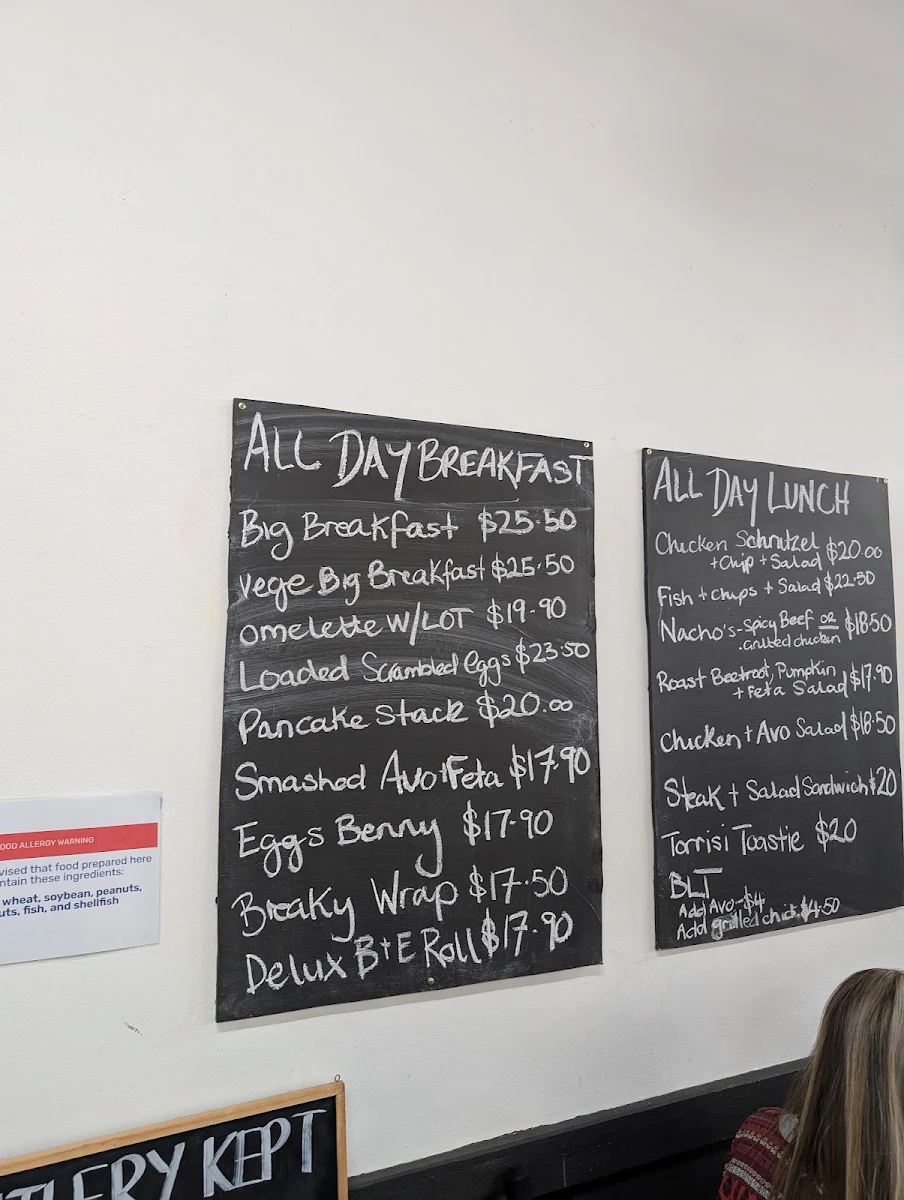 ALL DAY BREAKFAST
Big Breakfast $25.50
vege Big Breakfast $25.50
omelette W/LOT $19.90
Loaded Scrambled eggs $23.50
Pancake Stack $20.00
Smashed Avo+Feta $17.90
Eggs Benny $17.90
Breaky Wrap $17.50
Delux B+E Roll $17.90
ALL DAY LUNCH
Chicken Schnitzel $20.00
+Chip + Salad
Fish + chips + Salad $22.50
Nacho's - Spicy Beef OR $18.50
.Grilled chicken
Roast Beetroot, Pumpkin $17.90
+ Feta Salad
Chicken + Avo Salad $18.50
Steak + Salad Sandwich $20
Torrisi Toastie $20
BLT
Add Avo-$4
Add grilled chick $4.50
OOD ALLERGY WARNING
vised that food prepared here
ntain these ingredients:
wheat, soybean, peanuts,
uts, fish, and shellfish
TLERY KEPT